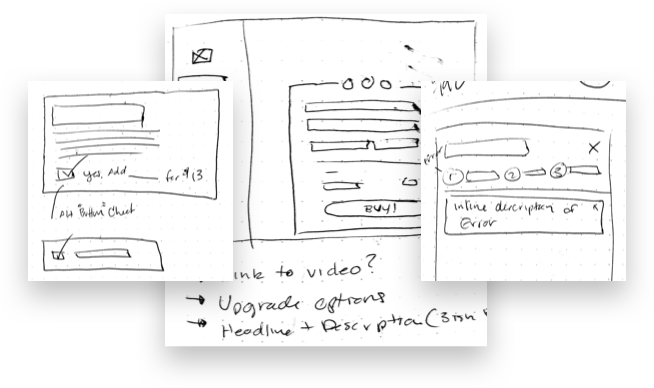 yes, Add ____ for $13
"Button"
BUY!
link to video?
→ Upgrade options
→ Headline + Description (3
1 2 3
X
Inline description of x
Error